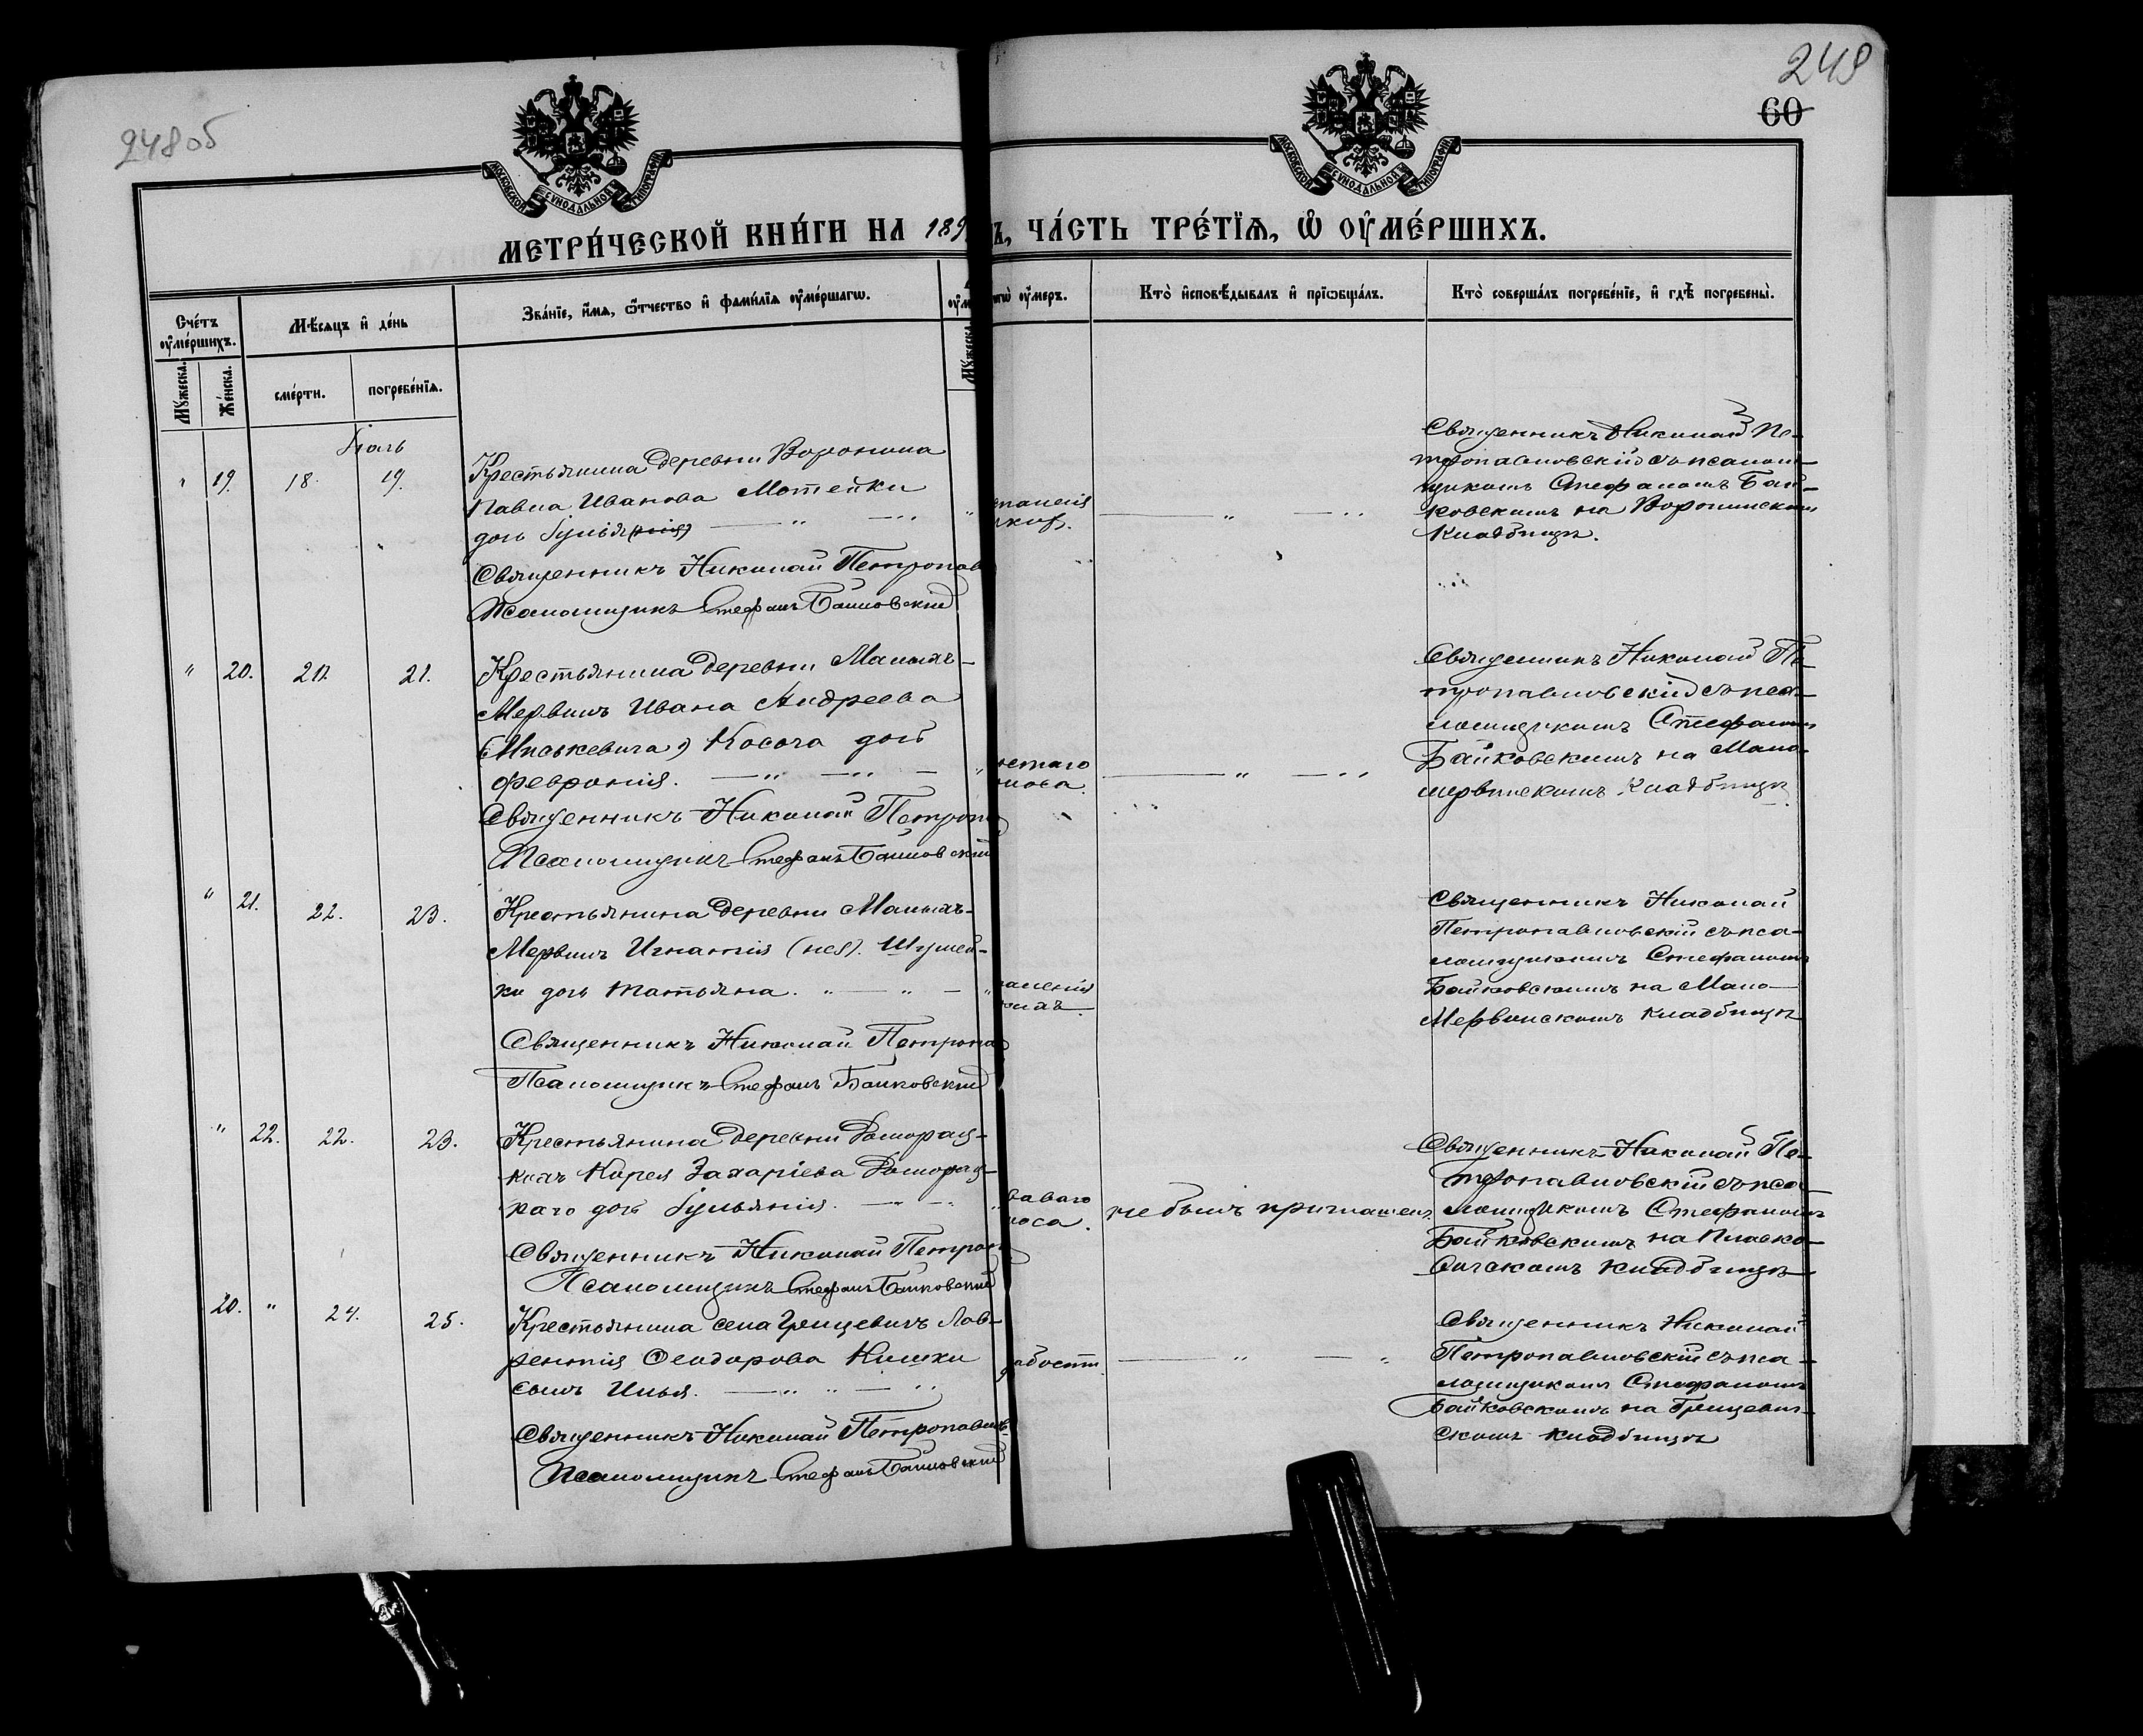 248об
249
60
МОСКОВСКОЙ СУНОДАЛЬНОЙ ТИПОГРАФІИ
МОСКОВСКОЙ СУНОДАЛЬНОЙ ТИПОГРАФІИ
МЕТРИ́ЧЕСКОЙ КНИ́ГИ НА 189
Ъ, ЧА́СТЬ ТРЕ́ТЇѦ, Ѡ҆ ОУ҆МЕ́РШИХЪ.
Сче́тъ оу҆ме́ршихъ.
Мꙋ́жеска.
Же́нска.
Мѣ́сяцъ и҆ де́нь
сме́рти.
погребе́нїѧ.
Зва́нїе, и҆́мѧ, ѻ҆́тчество и҆ фами́лїѧ оу҆ме́ршагѡ.
оу҆́меръ.
Кто̀ и҆сповѣ́дывалъ и҆ прїѡбща́лъ.
Кто̀ соверша́лъ погребе́нїе, и҆ гдѣ̀ погребены̀.
Іюль
" 19. 18. 19.
Крестьянина деревни Воронина
Павла Иванова Мотейки
дочь Іулія
Священникъ Николай Петропав
Псаломщикъ Стефанъ Байковский
Священникъ Николай Пе-
тропавловскій съ псалом-
щикомъ Стефаномъ Бай-
ковскимъ на Воронинском
кладбищѣ.
" 20. 20. 21.
Крестьянина деревни Малыхъ-
Мервинъ Ивана Андреева
(Миськевича) Косача дочь
Феврония.
Священникъ Николай Петропа
Псаломщикъ Стефанъ Байковский
Священникъ Николай Пе-
тропавловскій съ пса-
ломщикомъ Стефаномъ
Байковскимъ на Мало-
мервинскомъ кладбищѣ
" 21. 22. 23.
Крестьянина деревни Малыхъ-
Мервинъ Игнатія Шумей-
ки дочь Татьяна.
Священникъ Николай Петропа
Псаломщикъ Стефанъ Байковский
Священникъ Николай
Петропавловскій съ пса-
ломщикомъ Стефаномъ
Байковскимъ на Мало-
Мервинскомъ кладбищѣ
" 22. 22. 23.
Крестьянина деревни Доморац-
кихъ Карея Захаріева Доморац-
каго дочь Іульянія.
Священникъ Николай Петроп
Псаломщикъ Стефанъ Байковский
ваваго
носа.
не былъ приглашенъ
Священникъ Николай Пе-
тропавловскій съ пса-
ломщикомъ Стефаномъ
Байковскимъ на Пляско-
вичскомъ кладбищѣ
20. " 24. 25.
Крестьянина села Грицевичъ Лав-
рентія Феодорова Кишки
сынъ Илья.
Священникъ Николай Петропавлов
Псаломщикъ Стефанъ Байковский
лабости
Священникъ Николай
Петропавловскій съ пса-
ломщикомъ Стефаномъ
Байковскимъ на Грицевич-
скомъ кладбищѣ